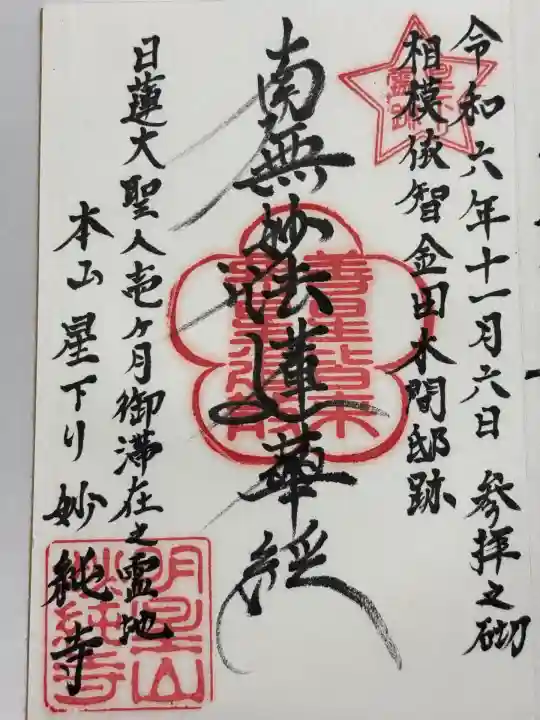 令和六年十一月六日 参拝之砌
相模依智金田本間邸跡
南無妙法蓮華経
日蓮大聖人壱ヶ月御滞在之霊地
本山星下り妙純寺
星下り
霊跡
明星山
妙純寺